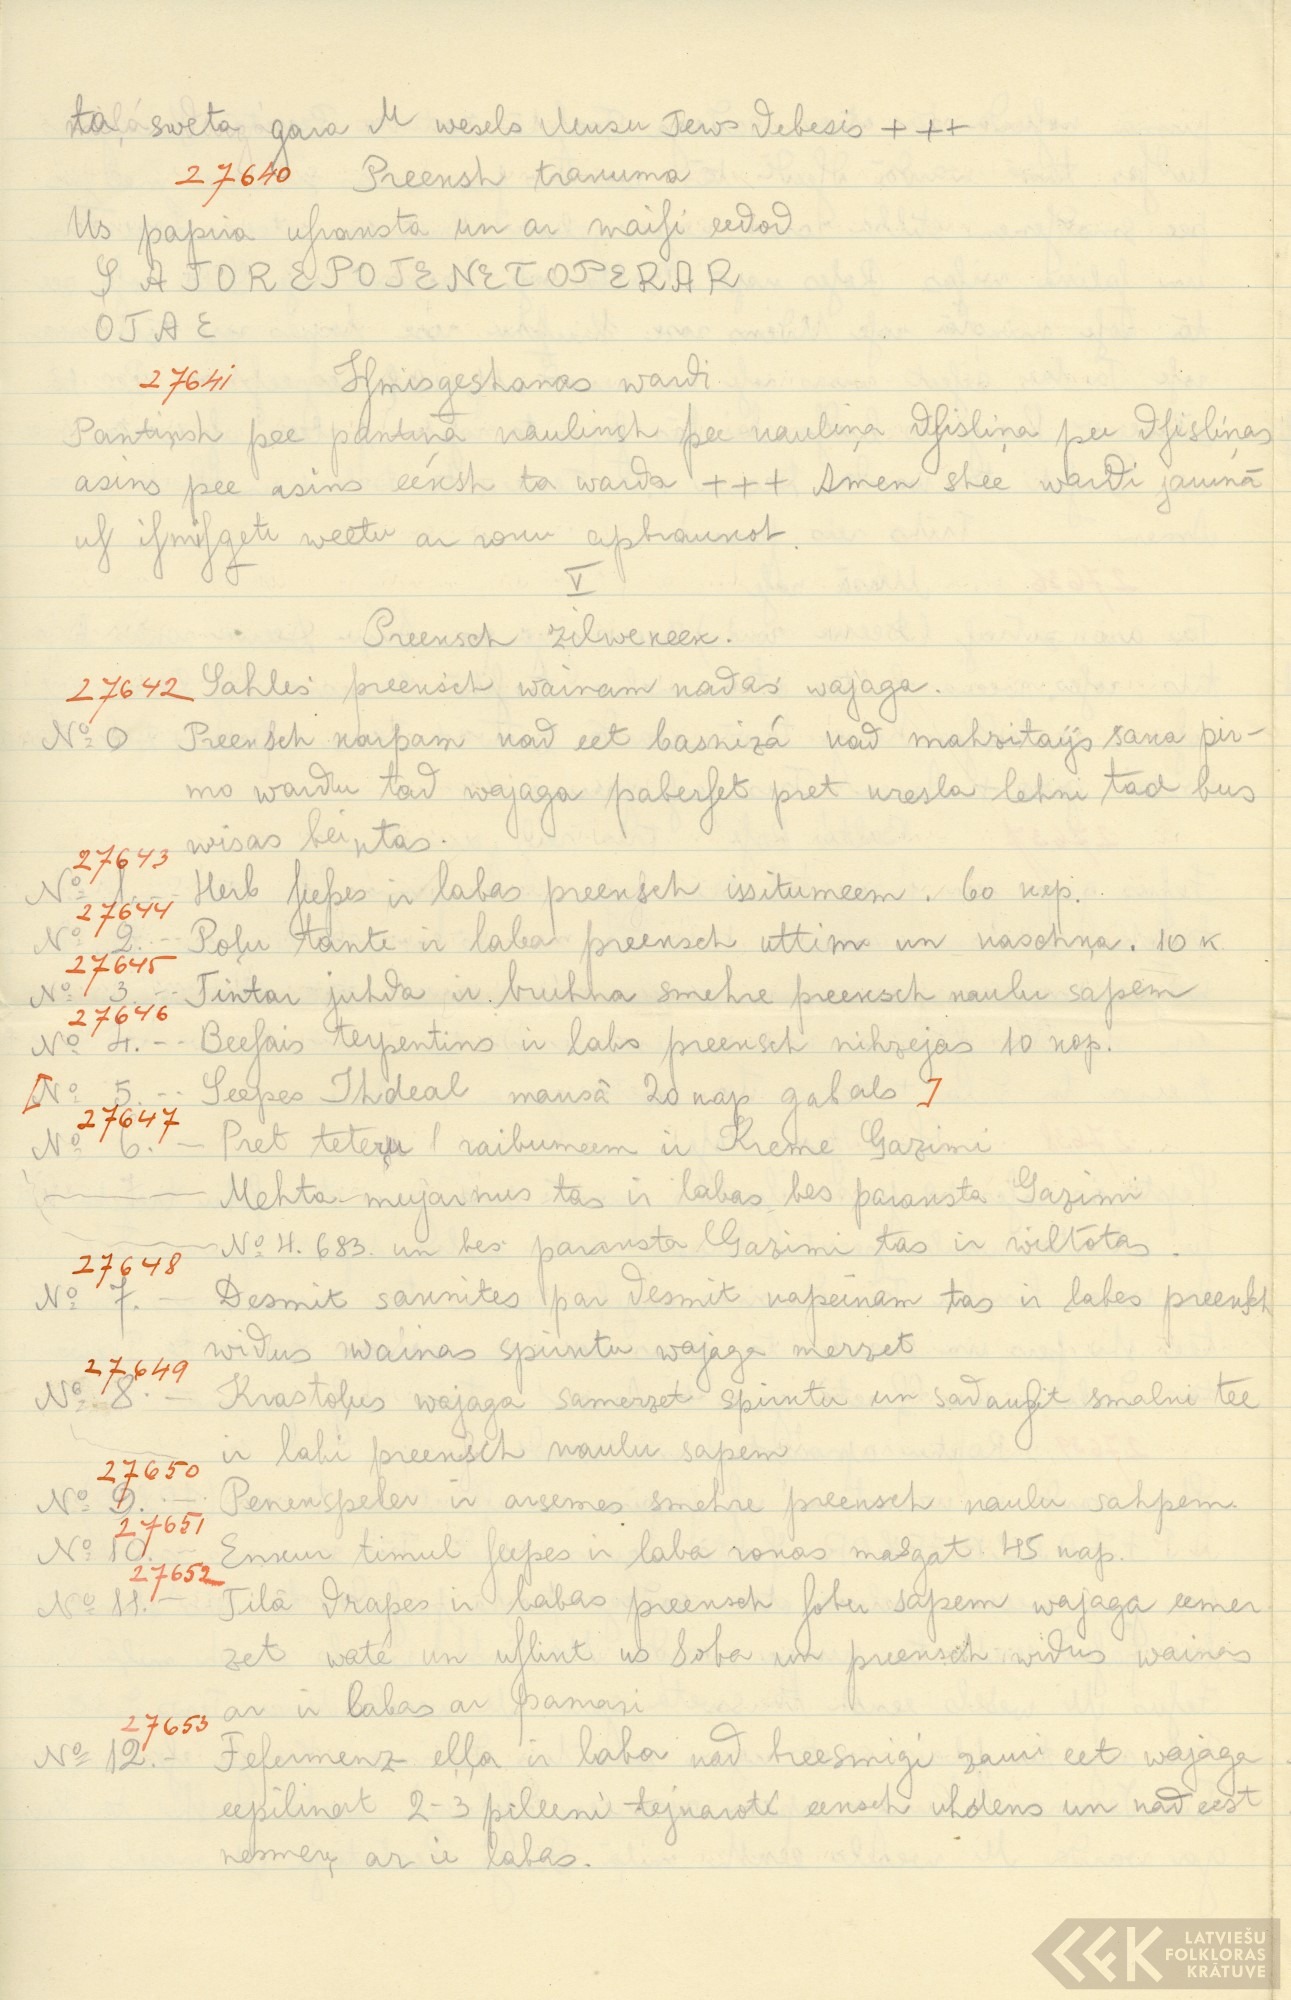 ta sweta gara M wesels Muusu Tews debesis +++
27640 Preeksh trakuma
Us papira usraksta un ar maisi eedod
SATOREPOTENETOPERAR
OTAE
27641 Ismisgeshanas wardi
Pantinsh pee pantina kaulinsh pee kauliņa dsisliņa pee dsisliņas
asins pee asins eéksh ta warda +++ Amen sheé wardi jaruna
us ismisgete weetu ar roku apbraukot.
V
Preeksch zilwekeek.
27642 Sahles preeksch wainam kadas wajaga.
№ 0 Preeksch karpam kad eet basnizá kad mahzitajs saka pir-
mo wardu tad wajaga paberset pret kresla lehni tad bus
wisas beigtas.
27643
№ 1.-- Herb seepes ir labas preeksch issitumeem. 60 kep.
27644
№ 2.-- Poļu tante ir laba preeksch uttim un kaschķa. 10 k
27645
№ 3.-- Tintar juhda ir bruhna smehre preeksch kaulu sapem
27646
№ 4.-- Beesais terpentins ir labs preeksch nihzejas 10 kop.
[№ 5.-- Seepes Ihdeal mausâ 20 kap gabals]
27647
№ 6.- Pret teteru raibumeem ir Kreme Gazimi
Mehta mujarkus tas ir labas bes paraksta Gazimi
№ 4.683. un bes paraksta Gazimi tas ir wiltotas.
27648
№ 7.- Desmit saknites par desmit kapeikam tas ir labes preeksch
widus wainas spirktu wajaga merzet
27649
№ 8.- Krastoļus wajaga samerzet spirktu un sadausit smalki tee
ir labi preeksch kaulu sapem
27650
№ 9.-- Penenspeler ir arsemes smehre preeksch kaulu sahpem.
27651
№ 10.-- Enkur timul seepes ir laba rokas masgat. 45 kap.
27652
№ 11.- Tilâ drapes ir labas preeksch sobu sapem wajaga eemer
zet wate un uslikt us soba un preeksch widus wainas
ar ir labas ar pamasi
27653
№ 12.- Fefermenz eļļa ir laba kad breesmigi zauri eet wajaga
eepilinat 2-3 pileeni tejkaroté eeksch uhdens un kad eest
negmeņ ar ir labas.
LATVIEŠU
FOLKLORAS
KRĀTUVE